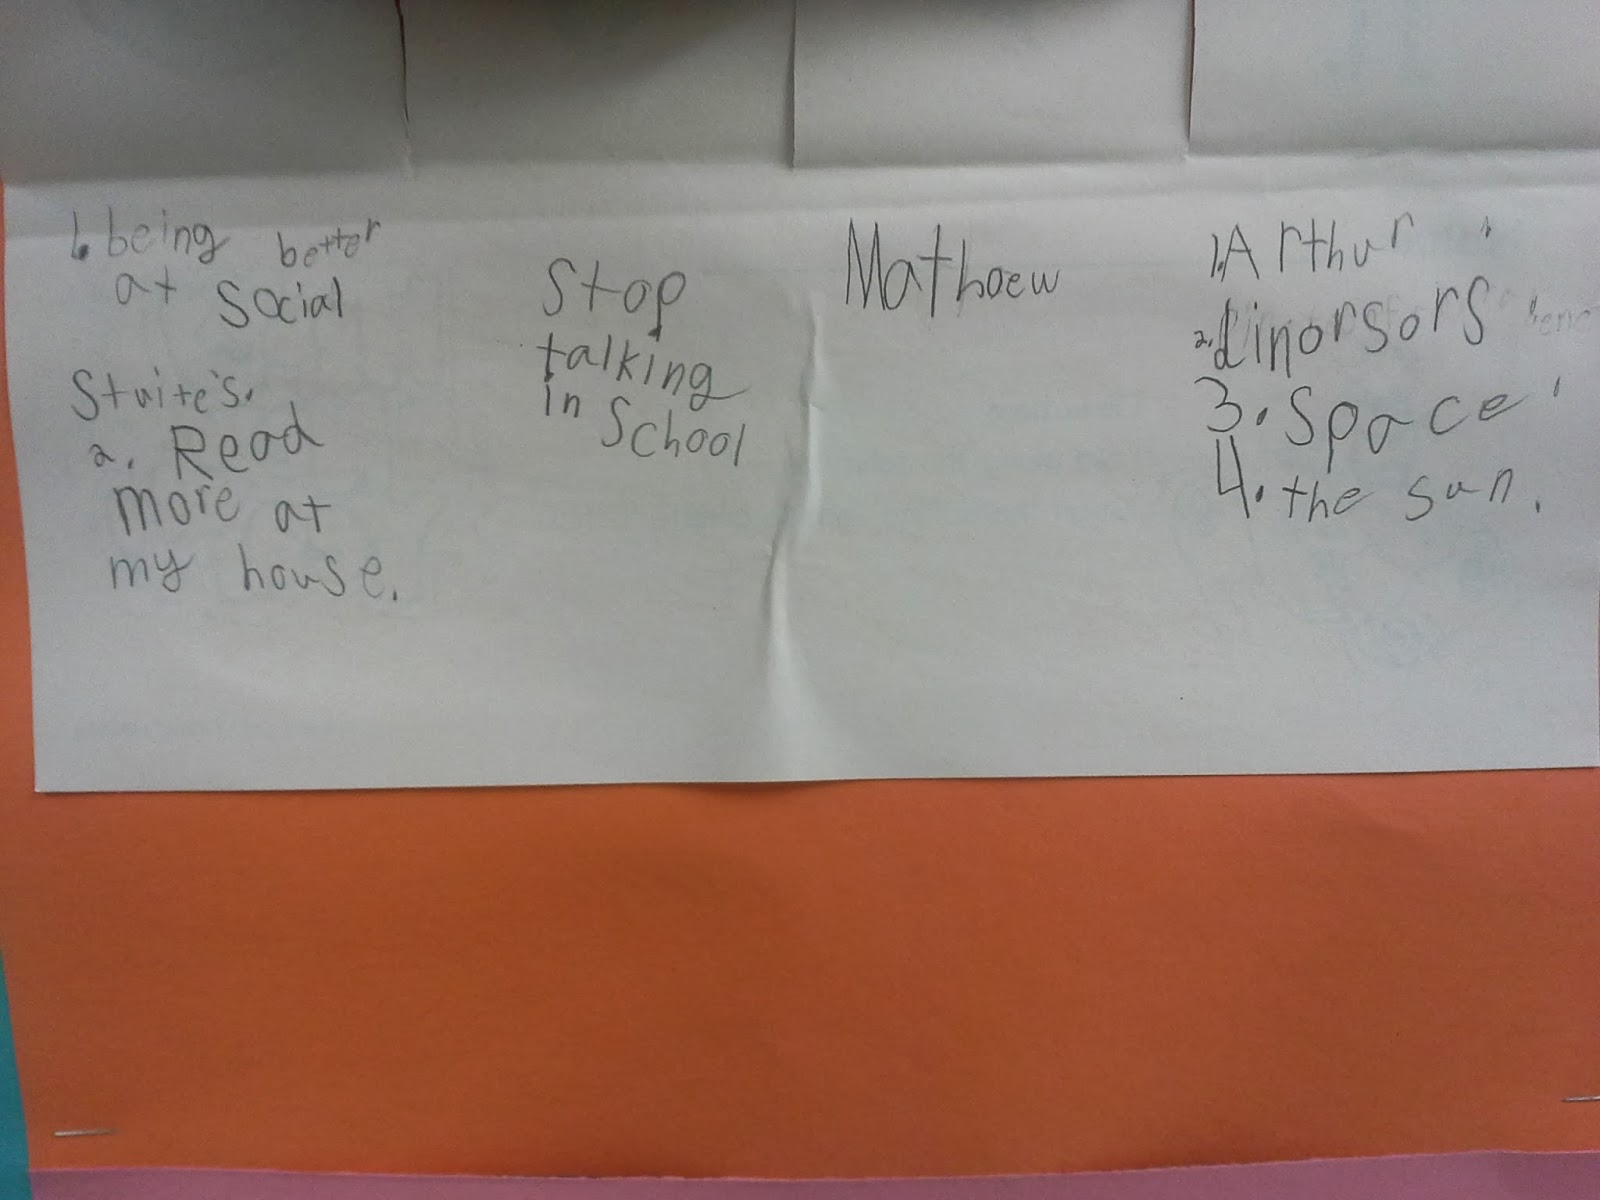 1. being better
at Social
Stuite's.
2. Read
more at
my house.
Stop
talking
in School
Mathoew
1. Arthur
2. dinorsors
3. Space
4. the sun.